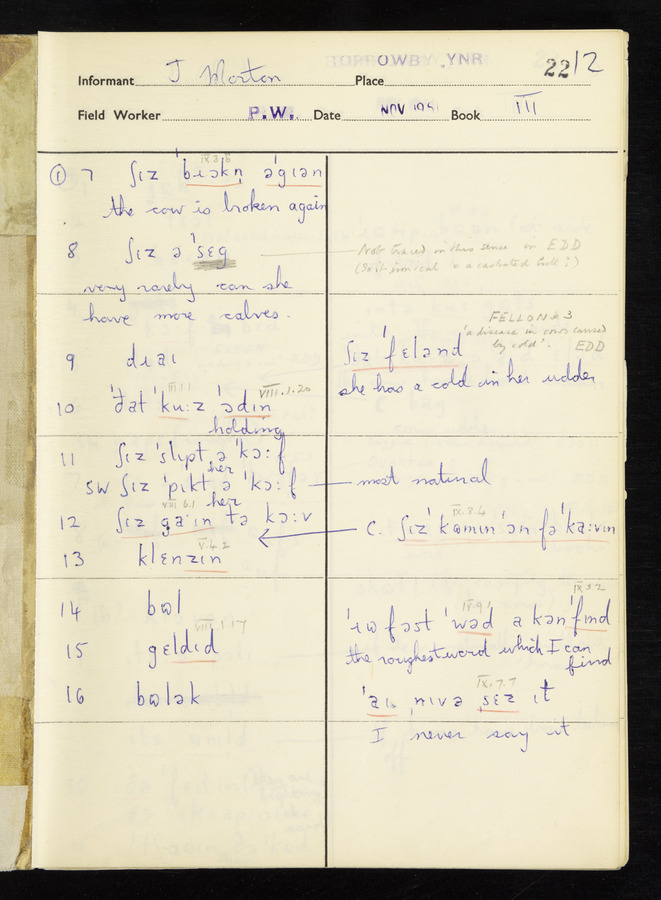 BORROWBY, YNR
Informant J Morton Place 22/2
Field Worker P.W. Date NOV Book III
IX.3.5
① 7 ʃɪz ˈbɹɔkn̩ əˈgɪən
the cow is broken again
8 ʃɪz ə ˈsɛg
very rarely can she
have more calves.
9 dɪaɪ
VIII.1.20
10 ˈðat ˈkuːz ˈədɪn
holding
11 ʃɪz ˈslɪpt ə ˈkɔːf
her
SW ʃɪz ˈpɪkt ə ˈkɔːf
her
VIII 6.1
12 ʃɪz gaˑɪn tə kɔːv
V.4.2
13 klɛnzɪn
14 bʊl
VIII 1 17
15 gɛldɪd
16 bʊlək
Not traced in this sense in EDD
FELLON sb 3
'a disease in cows caused
by cold'. EDD
ʃɪz ˈfɛlənd
she has a cold in her udder
most natural
IX.3.4
C. ʃɪz ˈkʊmɪn ˈɒn fə ˈkaːvɪn
IX 3 2
IV.9 1
ˈɹʊfəst ˈwəd a kən ˈfɪnd
the roughest word which I can
find
IX.7.7
ˈaɪ nɪvə sɛz ɪt
I never say it